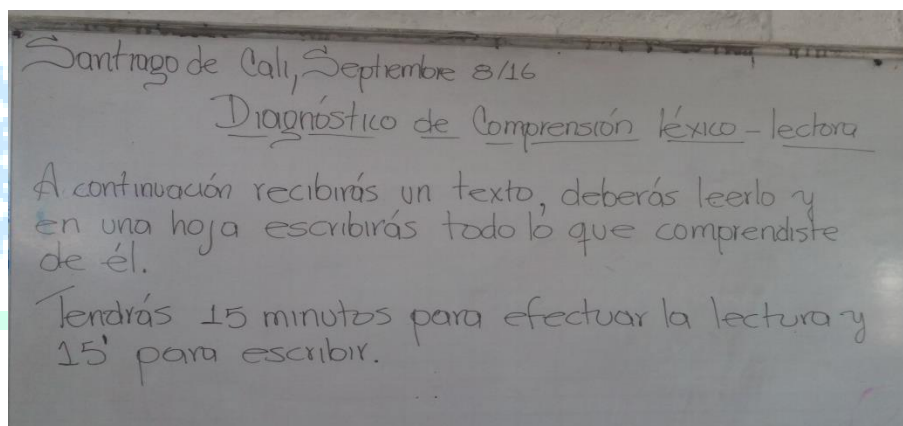 Santiago de Cali, Septiembre 8/16
Diagnóstico de Comprensión léxico - lectora
A continuación recibirás un texto, deberás leerlo y
en una hoja escribirás todo lo que comprendiste
de él.
Tendrás 15 minutos para efectuar la lectura y
15' para escribir.